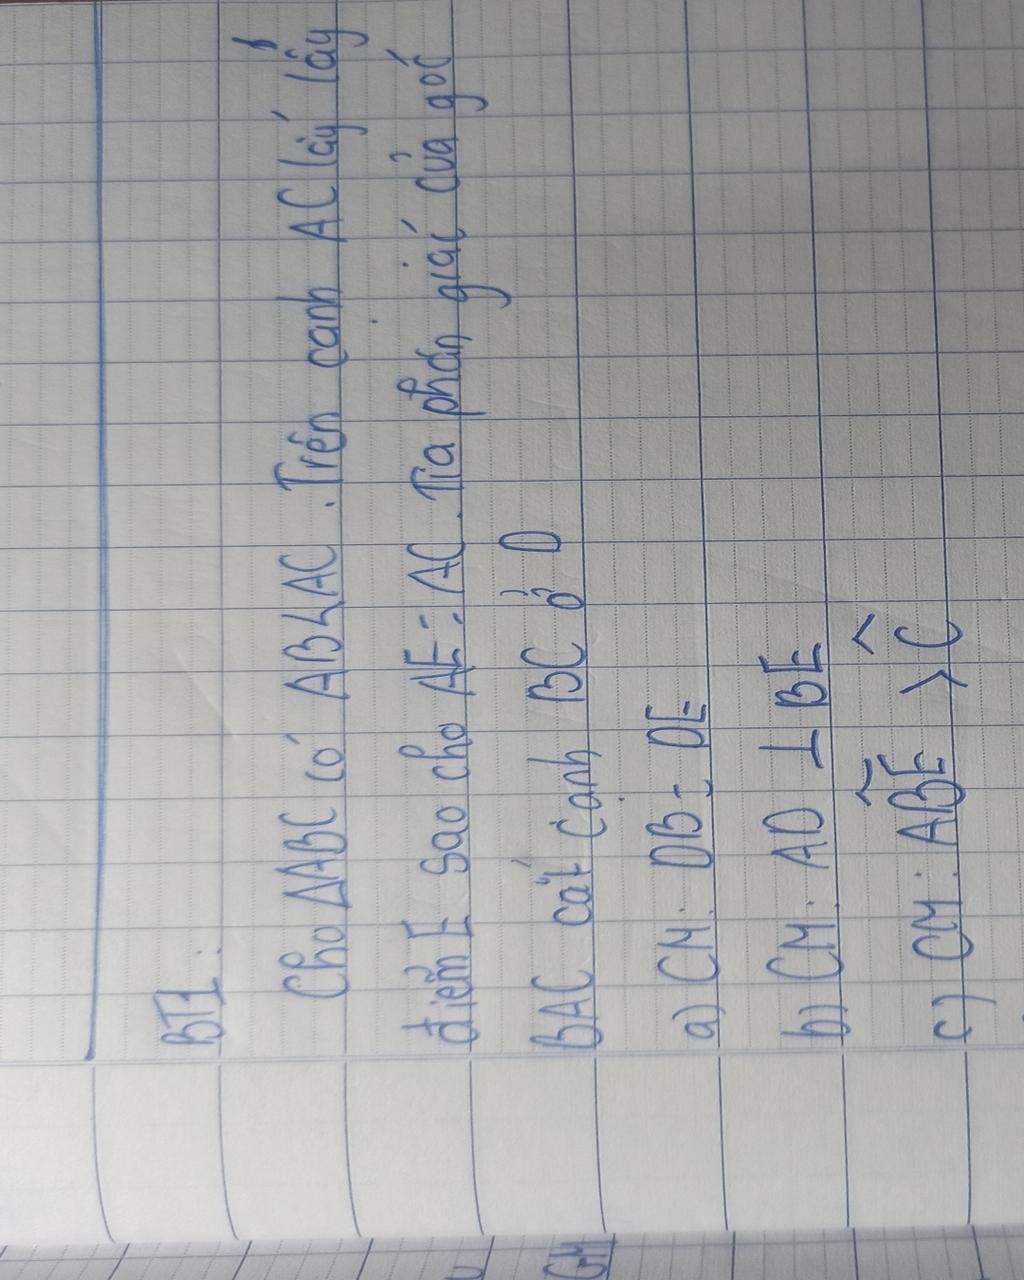 BT1:
Cho ΔABC có AB<AC. Trên cạnh AC lấy lấy
điểm E sao cho AE = AC. Tia phân giác của góc
BAC cắt cạnh BC ở D
a) CM: DB = DE
b) CM: AD ⊥ BE
c) CM: ABE > C
GM